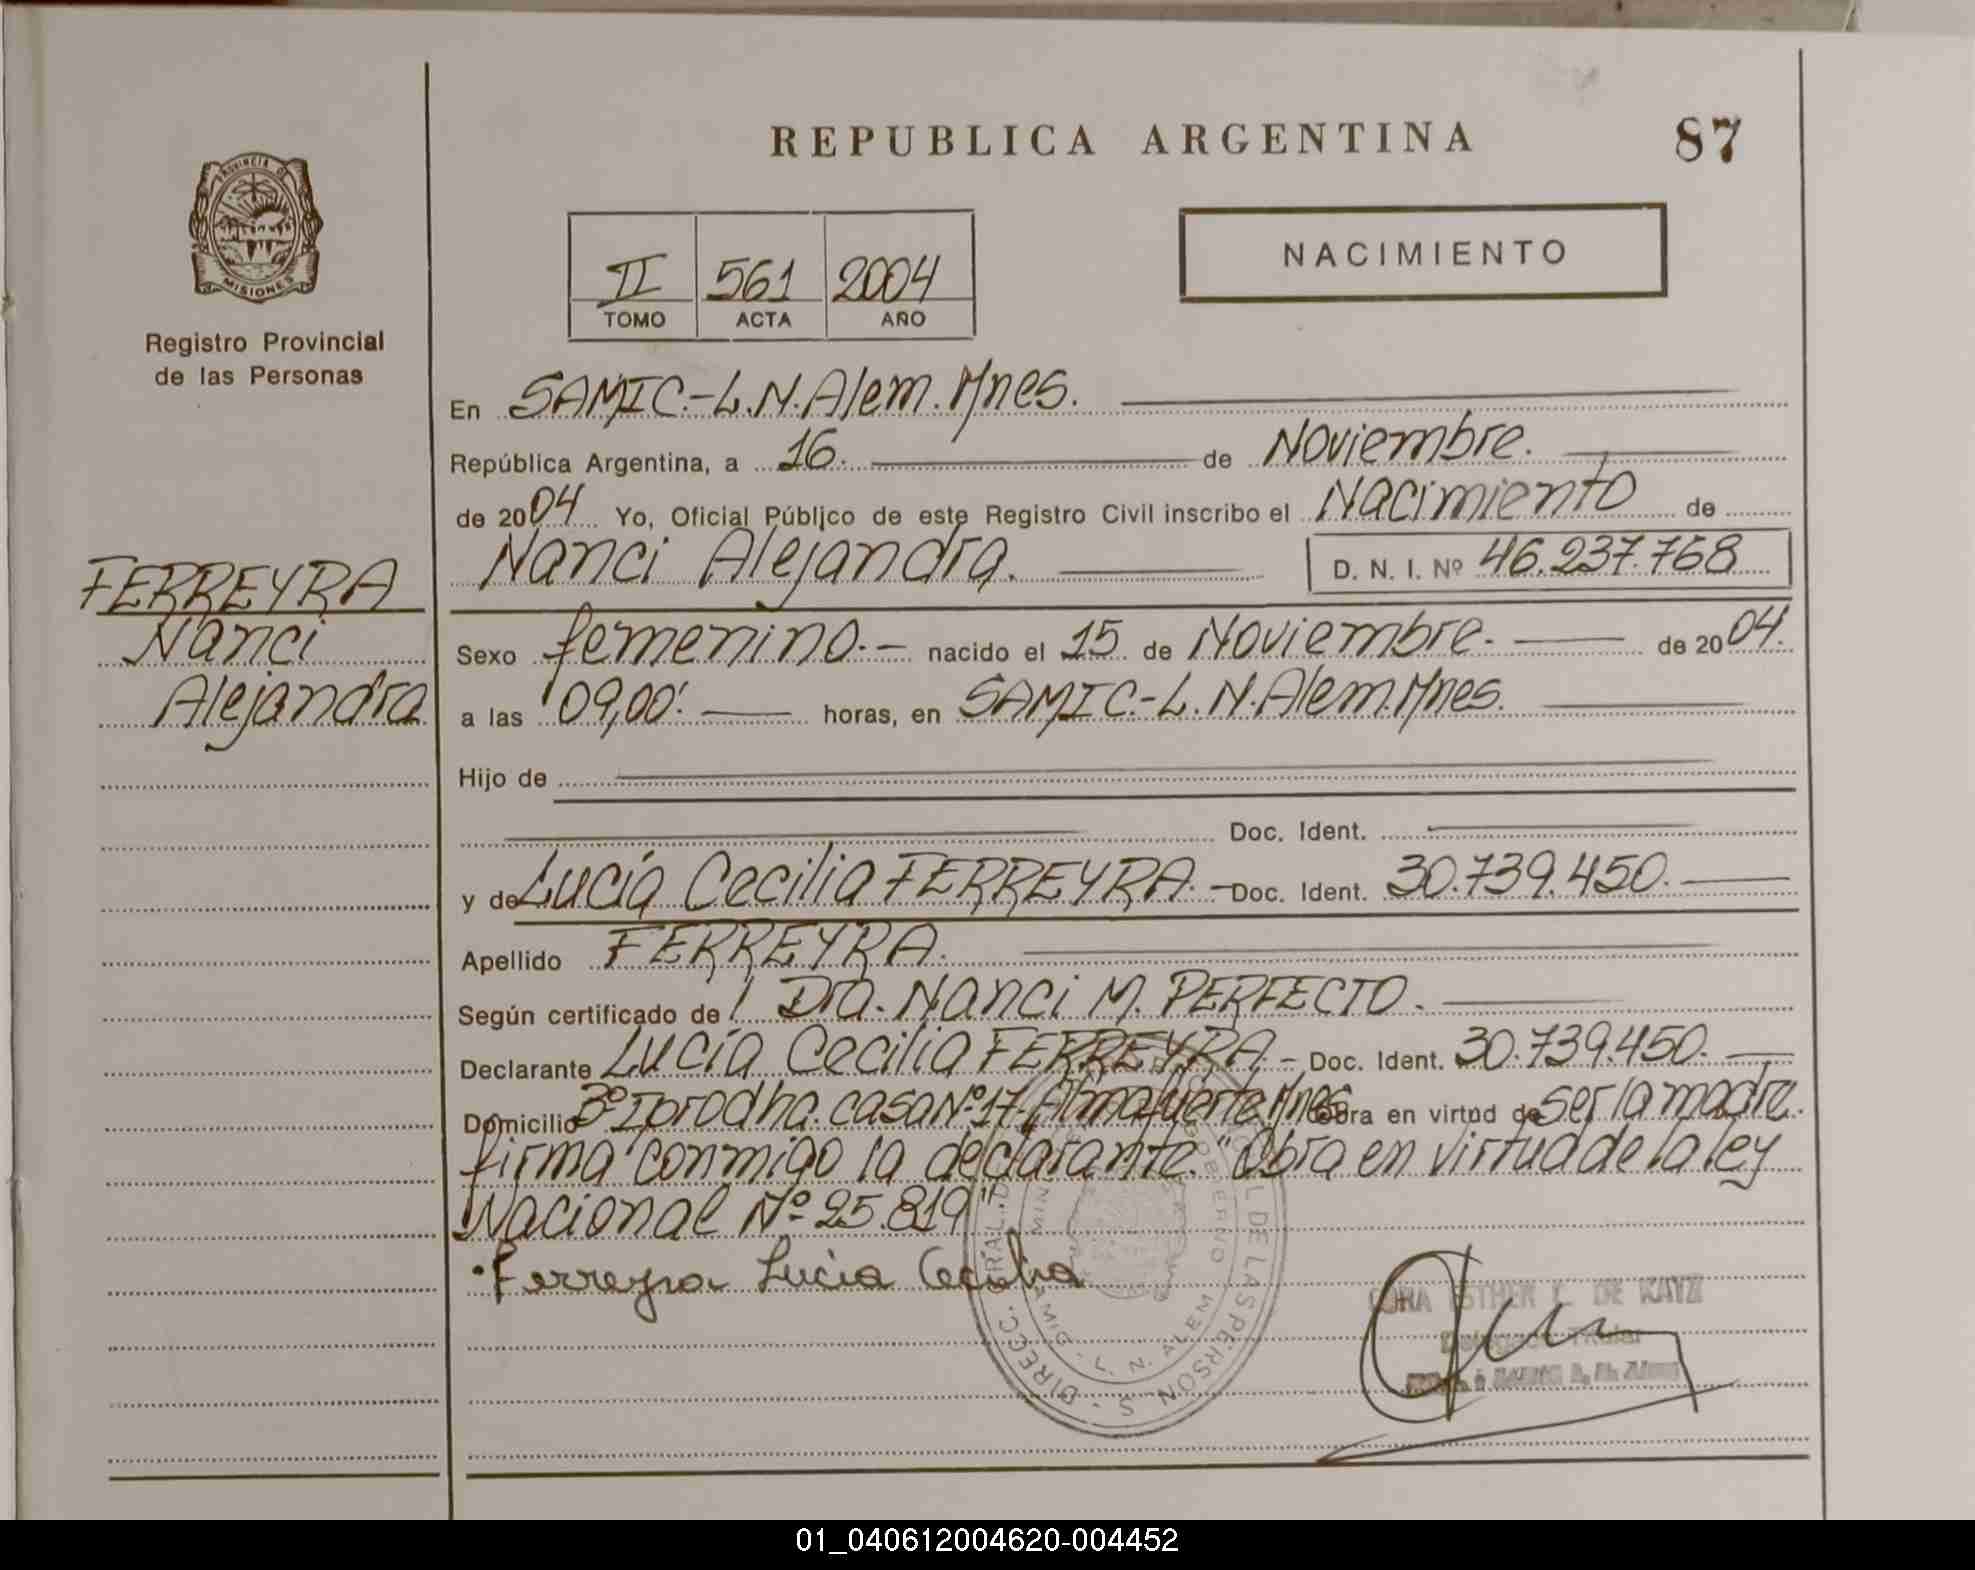 REPUBLICA ARGENTINA
87
PROVINCIA DE
MISIONES
Registro Provincial
de las Personas
II 561 2004
TOMO ACTA AÑO
NACIMIENTO
En SAMIC.-L.N.Alem.Mnes.
República Argentina, a 16. de Noviembre.
de 2004 Yo, Oficial Público de este Registro Civil inscribo el Nacimiento de
Nanci Alejandra. D. N. I. Nº 46.237.768
FERREYRA
Nanci
Alejandra
Sexo femenino.- nacido el 15 de Noviembre. de 2004.
a las 09,00'. horas, en SAMIC.-L.N.Alem.Mnes.
Hijo de
Doc. Ident.
y de Lucía Cecilia FERREYRA.- Doc. Ident. 30.739.450.
Apellido FERREYRA.
Según certificado de Dra. Nanci M. PERFECTO.
Declarante Lucía Cecilia FERREYRA- Doc. Ident. 30.739.450.
Domicilio 3º Iprodha. casa Nº 17. Almafuerte Mnes. Obra en virtud de ser la madre.
firma conmigo la declarante. "Obra en virtud de la ley
Nacional Nº 25.819"
Ferreyra Lucia Cecilia
ESTHER DE KATZ
Titular
L. N. ALEM
DE LAS PERSONAS
GOBIERNO
01_040612004620-004452